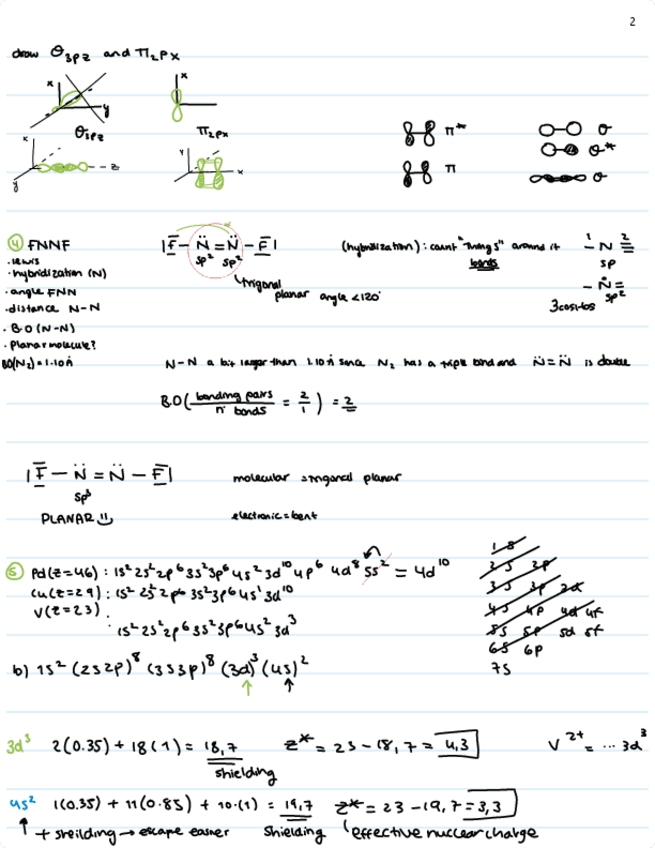 2
draw Θ3pz and π2px
x
y
x
Θ3pz
π2px
x
y
z
y
x
π*
π
σ
σ*
σ
④ FNNF
· lewis
· hybridization (N)
· angle FNN
· distance N-N
· B.O (N-N)
· Planar molecule?
BO(N2) = 1.10 Å
|F - N̈ = N̈ - F|
sp² sp²
trigonal
planar angle <120°
(hybridization): count "things" around it
bonds
1 2
- N ≡
sp
- N̈ =
sp²
N-N a bit larger than 1.10 Å since N2 has a triple bond and N̈=N̈ is double
B.O ( bonding pairs / n° bonds = 2/1 ) = 2
|F - N̈ = N̈ - F|
sp³
PLANAR
molecular = trigonal planar
electronic = bent
⑤ Pd (Z=46) : 1s² 2s² 2p⁶ 3s² 3p⁶ 4s² 3d¹⁰ 4p⁶ 4d⁸ 5s² = 4d¹⁰
Cu (Z=29) : 1s² 2s² 2p⁶ 3s² 3p⁶ 4s¹ 3d¹⁰
V (Z=23) :
1s² 2s² 2p⁶ 3s² 3p⁶ 4s² 3d³
1s
2s 2p
3s 3p 3d
4s 4p 4d 4f
5s 5p 5d 5f
6s 6p
7s
b) 1s² (2s2p)⁸ (3s3p)⁸ (3d)³ (4s)²
3d³ 2(0.35) + 18(1) = 18,7 Z* = 23 - 18,7 = 4,3 V²⁺ = ... 3d³
shielding
4s² 1(0.35) + 11(0.85) + 10·(1) = 19,7 Z* = 23 - 19,7 = 3,3
+ sheilding → escape easier shielding effective nuclear charge